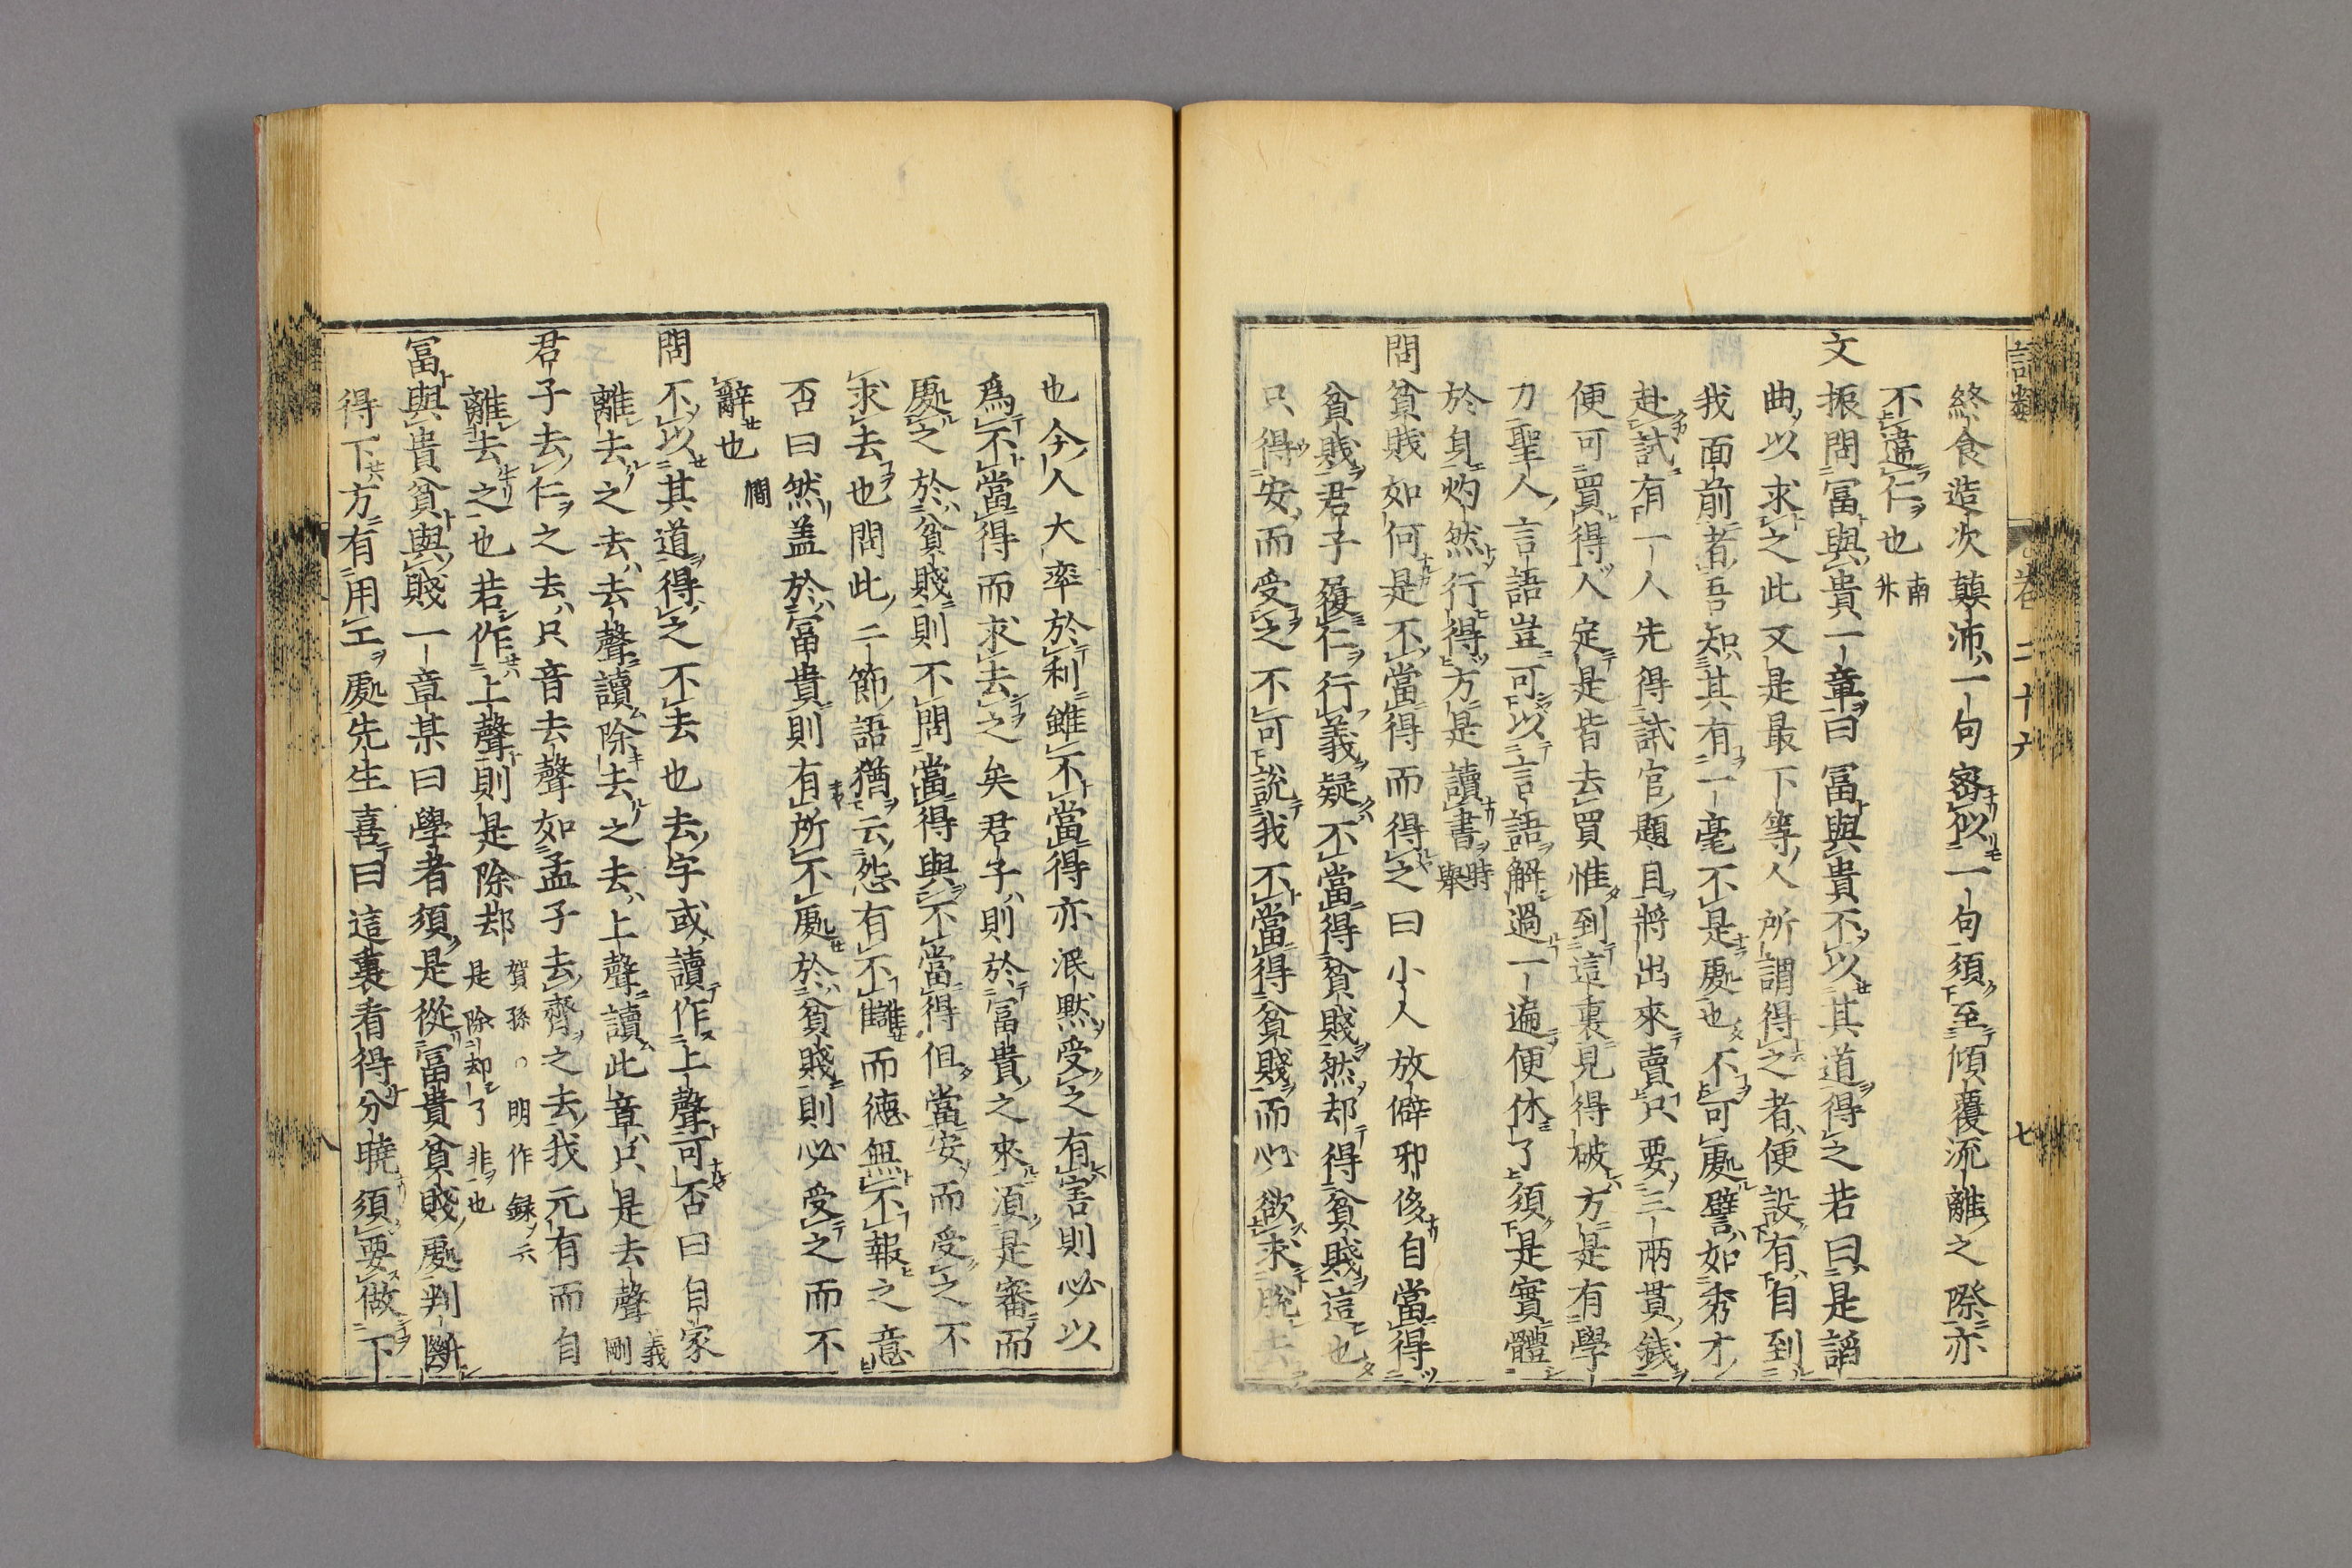 語類 卷二十六 七
終食造次顛沛一句密似一句須至傾覆流離之際亦
不違仁也 南升
文振問冨與貴一章曰冨與貴不以其道得之若曰是諂
曲以求之此又是最下等人所謂得之者便設有自到
我面前者吾知其有一毫不是處也不可處譬如秀才
赴試有一人先得試官題目將出來賣只要三兩貫錢
便可買得人定是皆去買惟到這裏見得破方是有學
力聖人言語豈可以言語解過一遍便休了須是實體
於身灼然行得方是讀書 時舉
問貧賎如何是不當得而得之曰小人放僻邪侈自當得
貧賎君子履仁行義疑不當得貧賎然却得貧賎這也
只得安而受之不可說我不當得貧賎而必欲求脫去
也今人大率於利雖不當得亦泯黙受之有害則必以
爲不當得而求去之矣君子則於冨貴之來須是審而
處之於貧賎則不問當得與不當得但當安而受之不
求去也問此二節語猶云怨有不讎而德無不報之意
否曰然盖於冨貴則有所不處於貧賎則必受之而不
辭也 僩
問不以其道得之不去也去字或讀作上聲可否曰自家
離去之去去聲讀除去之去上聲讀此章只是去聲 義剛
君子去仁之去只音去聲如孟子去齊之去我元有而自
離去之也若作上聲則是除却 賀孫○明作録云是除却了非也
冨與貴貧與賎一章某曰學者須是從冨貴貧賎處判斷
得下方有用工處先生喜曰這裏看得分曉須要做下